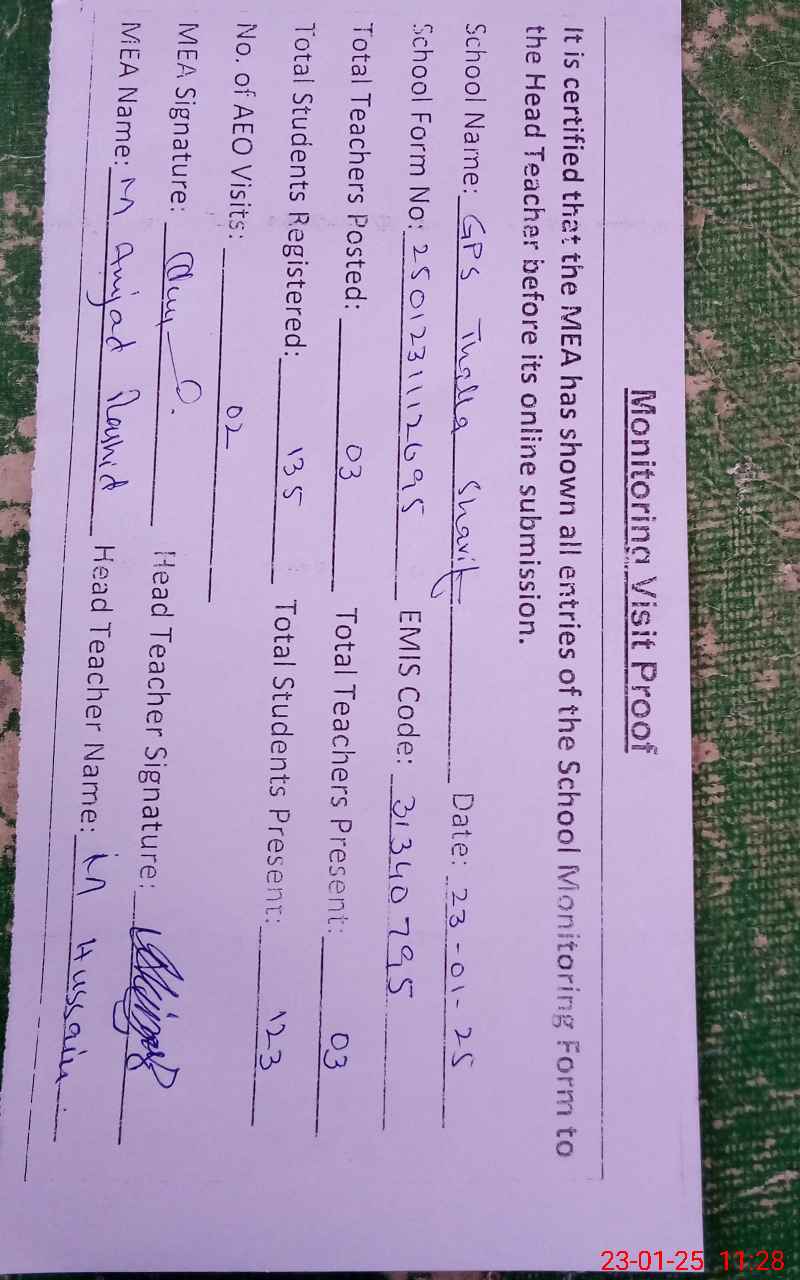 Monitoring Visit Proof
It is certified that the MEA has shown all entries of the School Monitoring Form to
the Head Teacher before its online submission.
School Name: GPS Thalla Sharif Date: 23-01-25
School Form No: 2501231112695 EMIS Code: 31340795
Total Teachers Posted: 03 Total Teachers Present: 03
Total Students Registered: 135 Total Students Present: 123
No. of AEO Visits: 02
MEA Signature: Head Teacher Signature:
MEA Name: M Amjad Rashid Head Teacher Name: M Hussain
23-01-25 11:28